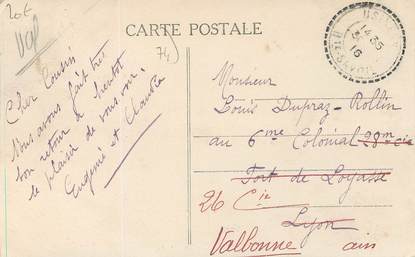 20€
Val
CARTE POSTALE
74
14 35
16
Hte-SAVOIE
Cher Cousin
Nous avons fait très
bon retour à bientôt
le plaisir de vous voir.
Eugénie et Claudia
Monsieur
Louis Dupraz-Rollin
au 6me Colonial 28m Cie
Fort de Loyasse
26 Cie
Lyon
Valbonne ain